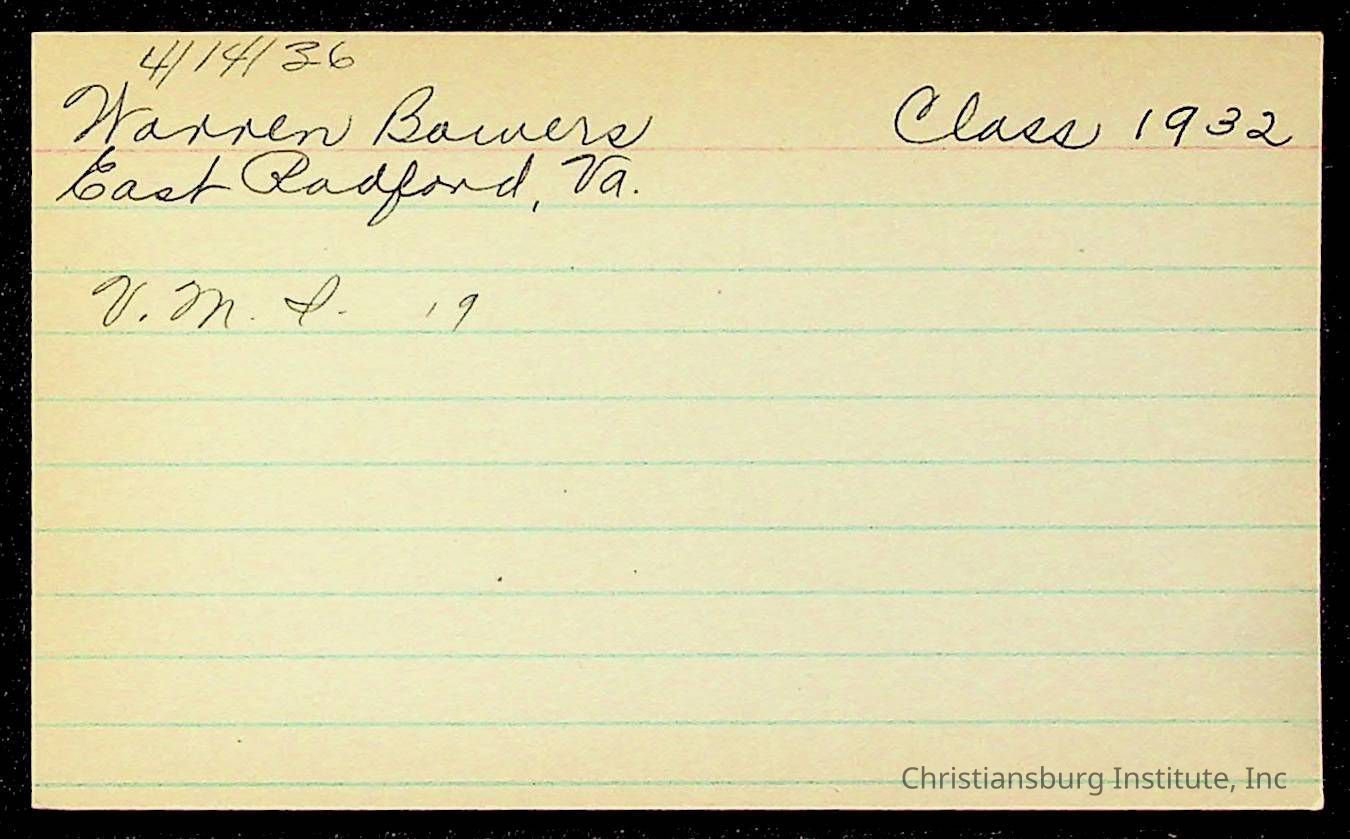 4/14/36
Warren Bowers Class 1932
East Radford, Va.
V. M. I. 19
Christiansburg Institute, Inc